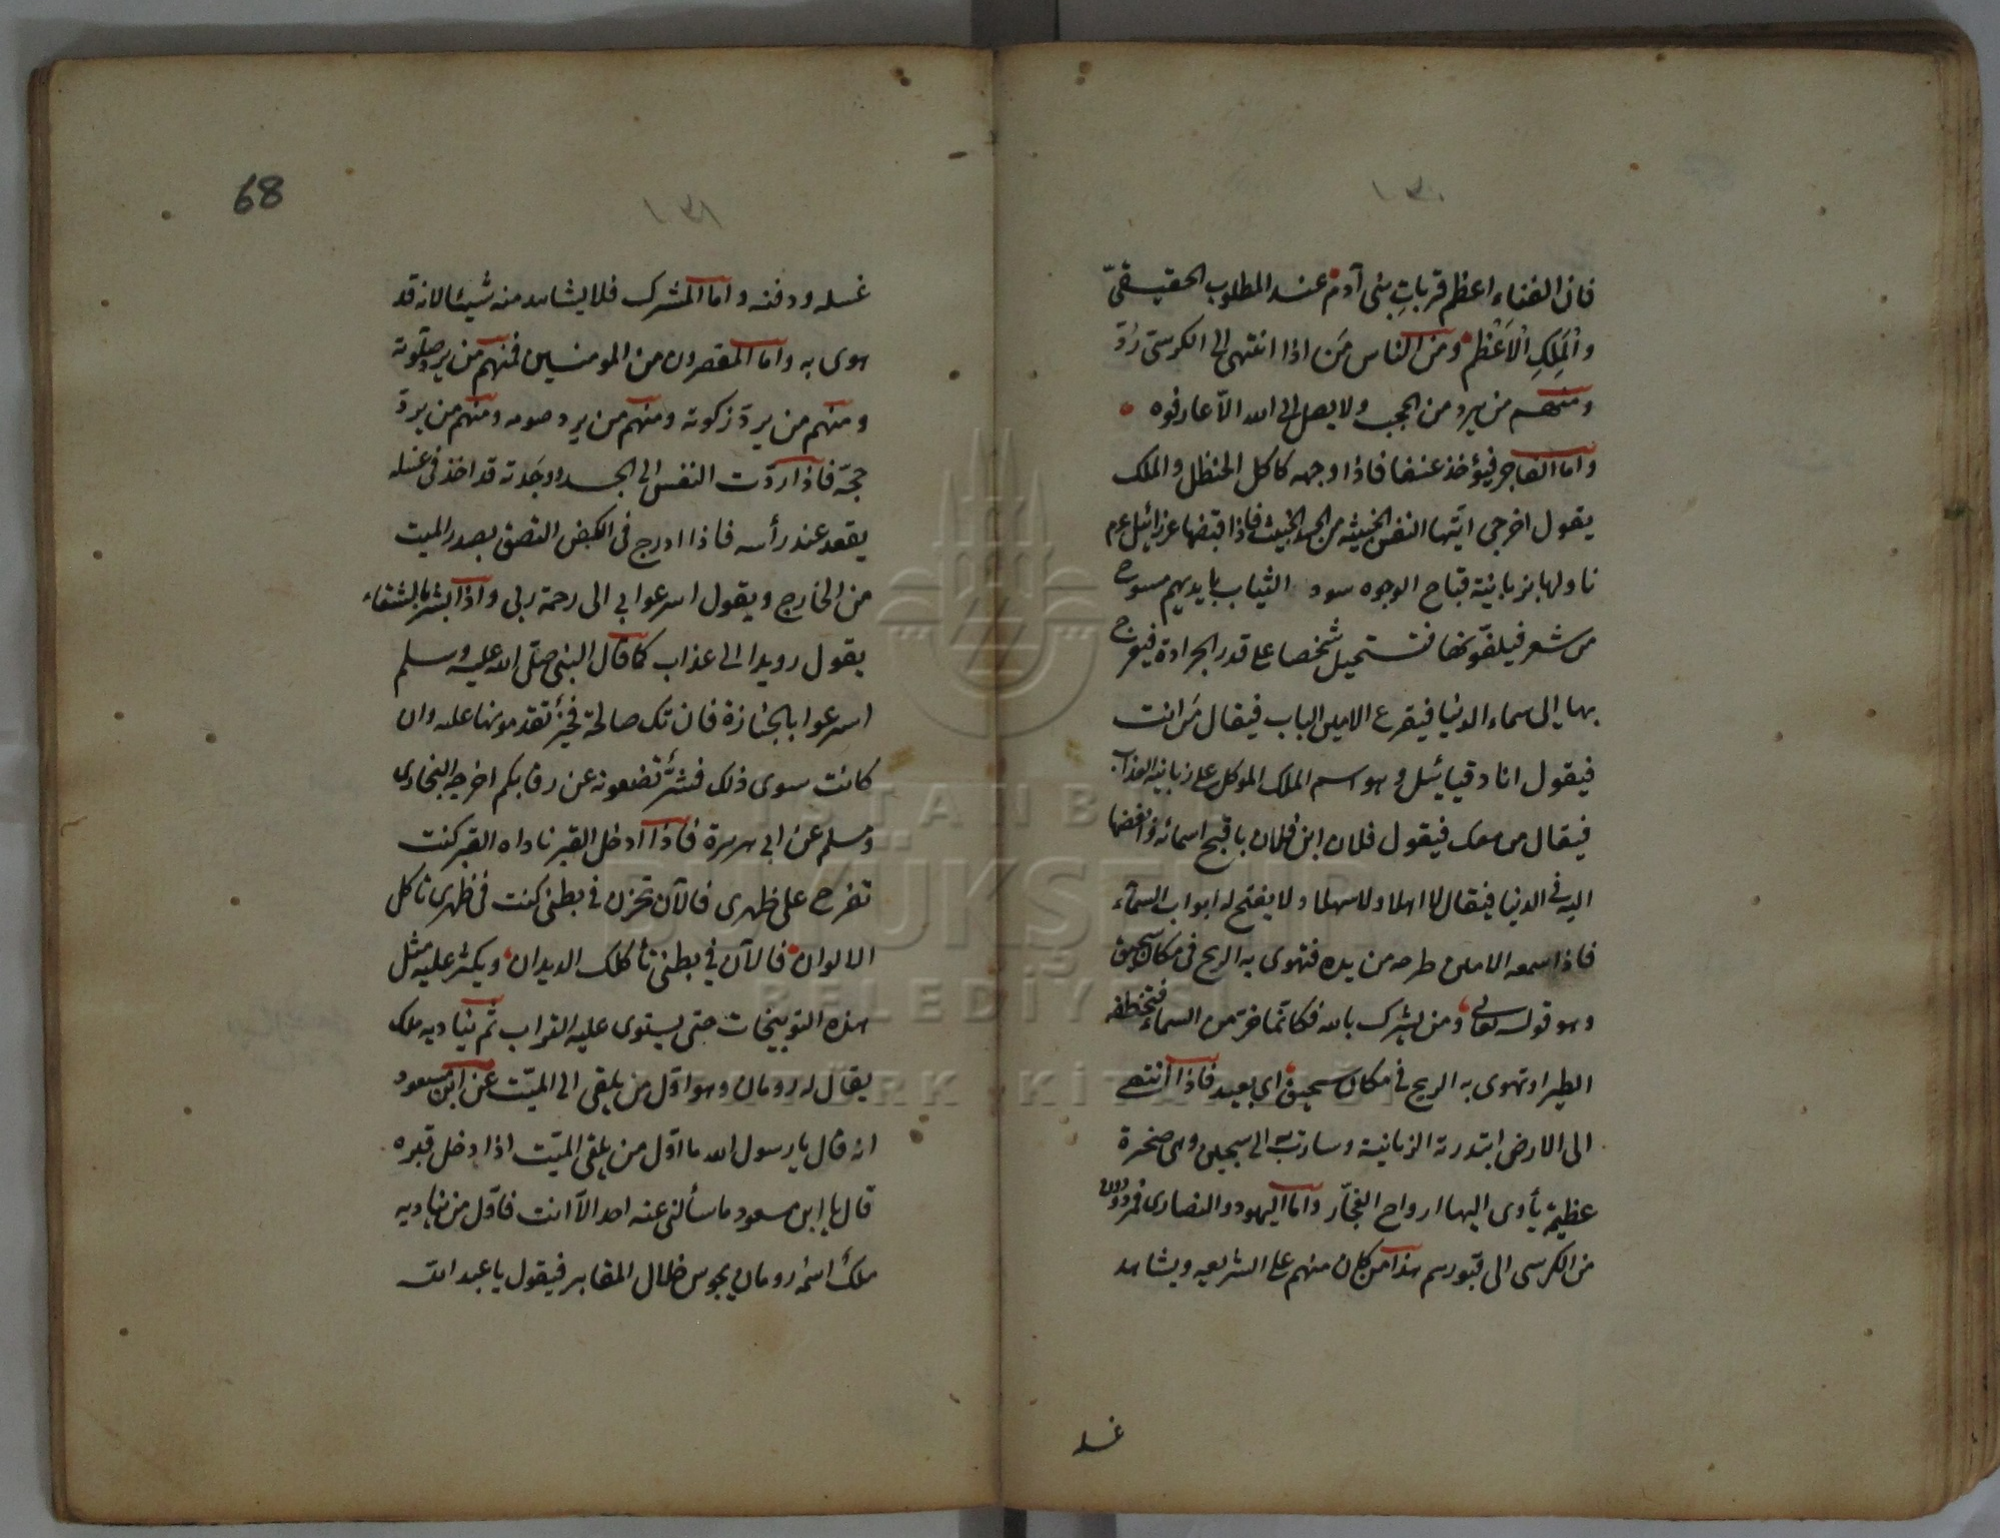 ١٣٠
فان الفناء اعظم قرباتِ بنى آدم عند المطلوب الحقيقىّ
والْمَلِكِ الْاَعْظم ومن الناس مَن اذا انتهى الى الكرسى رُدّ
ومنهم من يرد من الحجب ولا يصل الى الله الّا عارفوه
واما الفاجر فيؤخذ عنفا فاذا وجهه كاكل الحنظل والملك
يقول اخرجى ايّتها النفس الخبيثه من الجسد الخبيث فاذا قبضها عزرائيل عم
ناولها زبانية قباح الوجوه سود الثياب بايديهم مسوح
من شعر فيلفّونها فتستحيل شخصا على قدر الجرادة فيعرج
بها الى سماء الدنيا فيقرع الامين الباب فيقال مَن انت
فيقول انا دقيائيل وهو اسم الملك الموكل على زبانية العذاب
فيقال من معك فيقول فلان ابن فلان باقبح اسمائه وابغضها
اليه فى الدنيا فيقال لا اهلا ولا سهلا ولا يفتح له ابواب السماء
فاذا سمعه الامين طرحه من يده فتهوى به الريح فى مكان سحيق
وهو قوله تعالى ومن يشرك بالله فكانّما خرّ من السماء فتخطفه
الطير او تهوى به الريح فى مكان سحيق اى بعيد فاذا انتهى
الى الارض ابتدرته الزبانية وسارت به الى سجين وهى صخرة
عظيمة يأوى اليها ارواح الفجّار واما اليهود والنصارى فمردودون
من الكرسى الى قبورهم هذا من كان منهم على الشريعه ويشاهد
غسله
68
١٣١
غسله ودفنه واما المشرك فلا يشاهد منه شيئا لانه قد
هوى به واما المقصرون من المومنين فمنهم من يرد صلوته
ومنهم من يردّ زكوته ومنهم من يرد صومه ومنهم من يردّ
حجّه فاذا ردّت النفس الى الجسد ووجَدته قد اخذ فى غسله
يقعد عند رأسه فاذا ادرج فى الكفن التصق بصدر الميت
من الخارج ويقول اسرعوا بى الى رحمة ربى واذا بشر بالشقاء
يقول رويدا الى عذاب كما قال النبى صلّى الله عليه وسلم
اسرعوا بالجنازة فان تك صالحة فخيرٌ تقدمونها عليه وان
كانت سوى ذلك فشرٌّ تضعونه عن رقابكم اخرجه البخارى
ومسلم عن ابى هريرة فاذا ادخل القبر ناداه القبر كنت
تفرح على ظهرى فالآن تحزن فى بطنى كنت فى ظهرى تاكل
الالوان فالآن فى بطنى تأكلك الديدان ويكثر عليه مثل
هذه التوبيخات حتى يستوى عليه التراب ثم يناديه ملك
يقال له رومان وهو اوّل من يلقى الى الميّت عن ابن مسعود
انه قال يا رسول الله ما اوّل من يلقى الميّت اذا دخل قبره
قال يا ابن مسعود ما سألنى عنه احد الّا انت فاوّل من يناديه
ملكٌ اسمه رومان يجوس خلال المقابر فيقول يا عبد الله